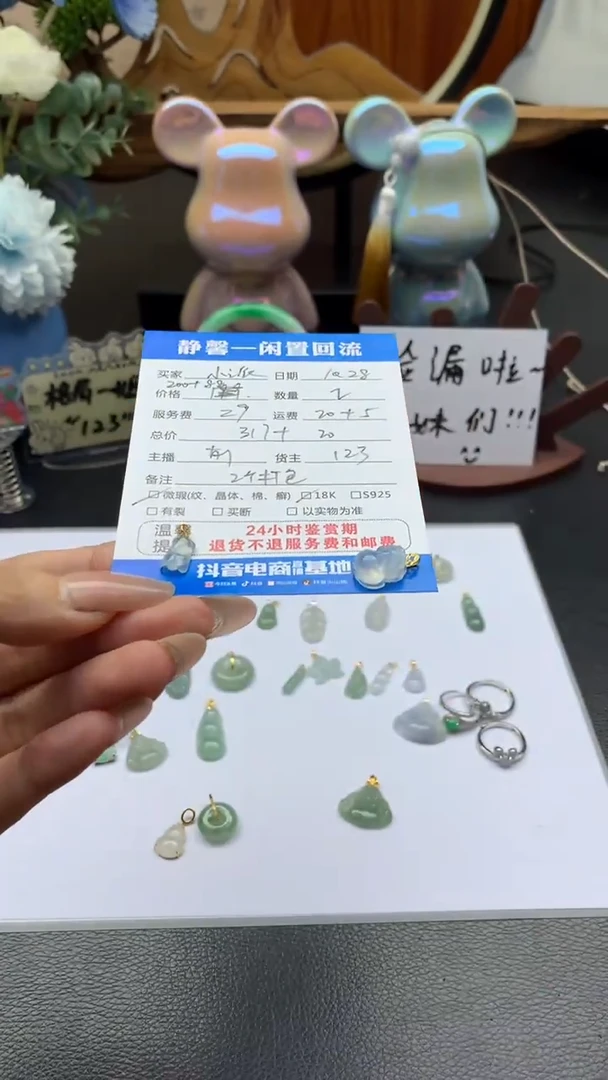 静馨一闲置回流
买家 小 日期 10.28
价格 200+88 数量 2
服务费 29 运费 20+5
总价 317+ 20
主播 货主 123
备注 24打包
微瑕(纹、晶体、棉、癣) 18K S925
有裂 买断 以实物为准
24小时鉴赏期
退货不退服务费和邮费
抖音电商 基地
格局一
"123"
漏啦~
妹们!!!